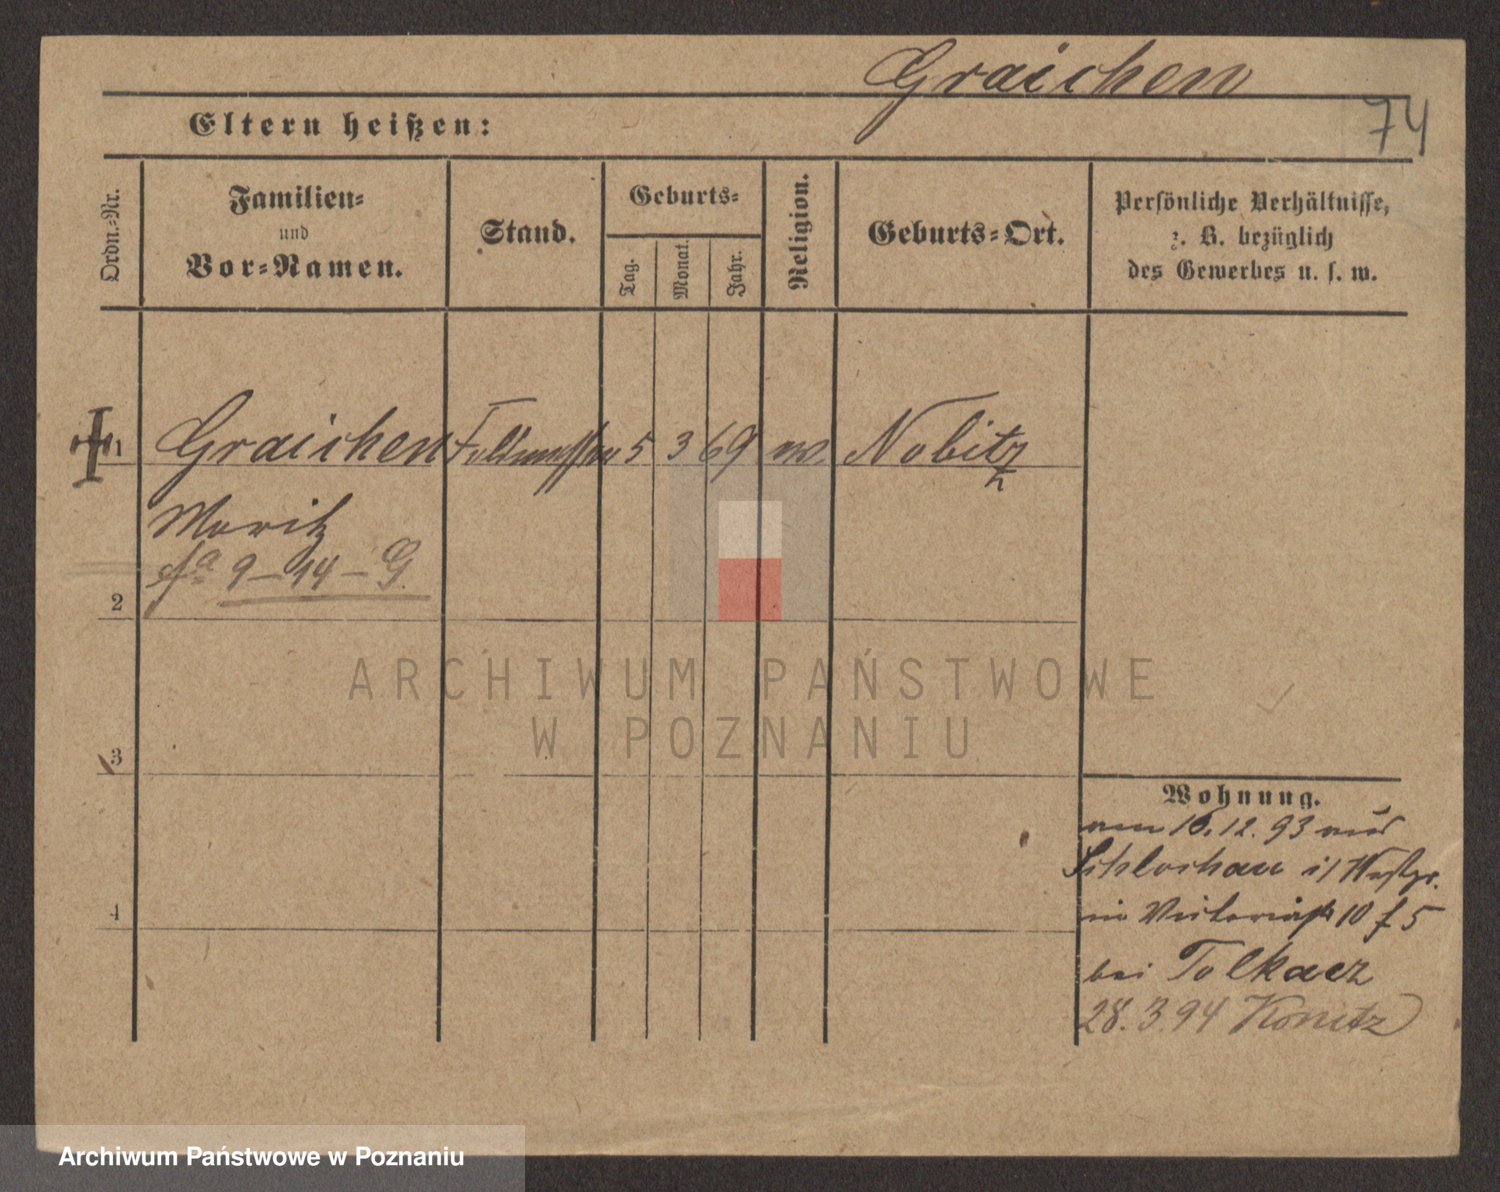 Graichen
74
Eltern heißen:
Ordn.-Nr.
Familien-
und
Vor-Namen.
Stand.
Geburts-
Tag.
Monat.
Jahr.
Religion.
Geburts-Ort.
Persönliche Verhältnisse,
z. B. bezüglich
des Gewerbes u. s. w.
1 Graichen Feldmesser 5 3 69 ev. Nobitz
Moritz
9-14-G.
2
3
4
ARCHIWUM PAŃSTWOWE
W POZNANIU
Wohnung.
am 16.12.93 aus
Schlochau i/ Westpr.
in Victoriastr 10 f 5
bei Tolkacz
28.3.94 Konitz
Archiwum Państwowe w Poznaniu